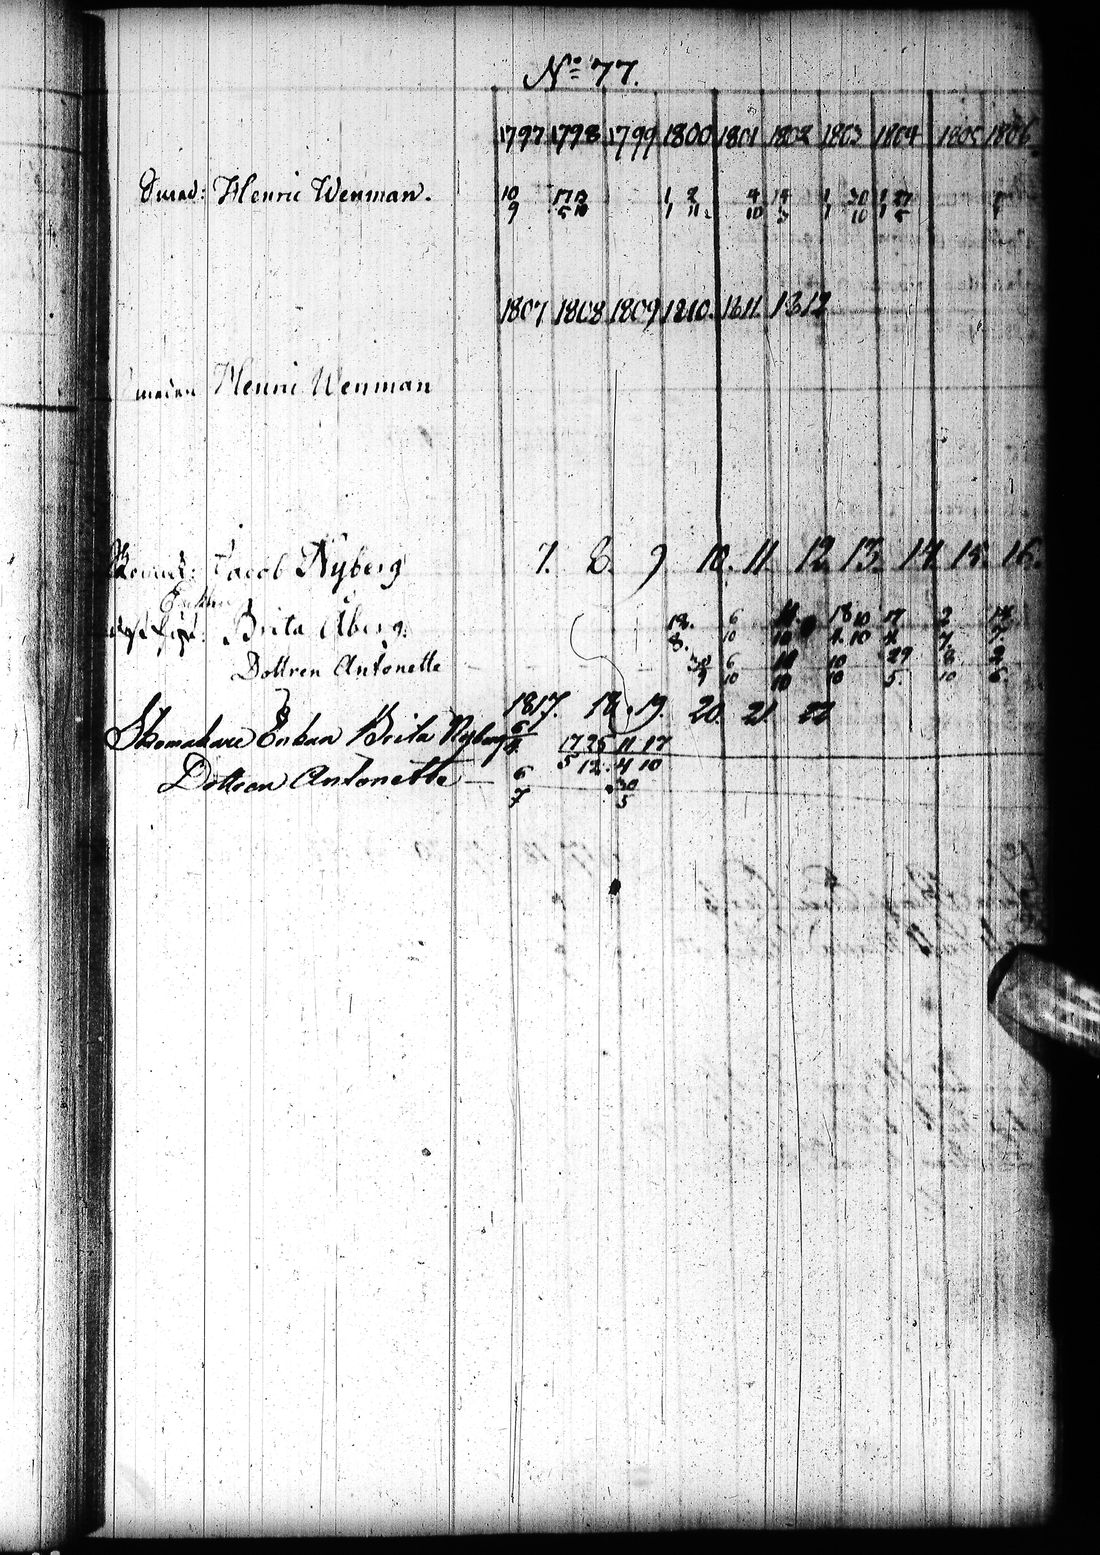 No 77.
1797 1798 1799 1800 1801 1802 1803 1804 1805 1806
Henric Wenman.
10 17 1 2 4 1 30 1 27
9 5 10 1 11 10 1 10 1 5
1807 1808 1809 1810. 1811. 1812
Henric Wenman
Jacob Nyberg 7. 8. 9 10. 11 12 13. 14. 15. 16.
Enkan
Brita Åberg. 18. 6 11. 18 10 17 2 18
8. 10 10 4. 10 4. 7
Dottren Antonette 30 6 10 29 8 2
9 10 10 10 5. 10 6.
1817. 18. 19. 20. 21. 22
Skomakare Enkan Brita Nyberg 6 17 25 11 17
4 5 12. 4 10
Dottren Antonette 6 30
7 5